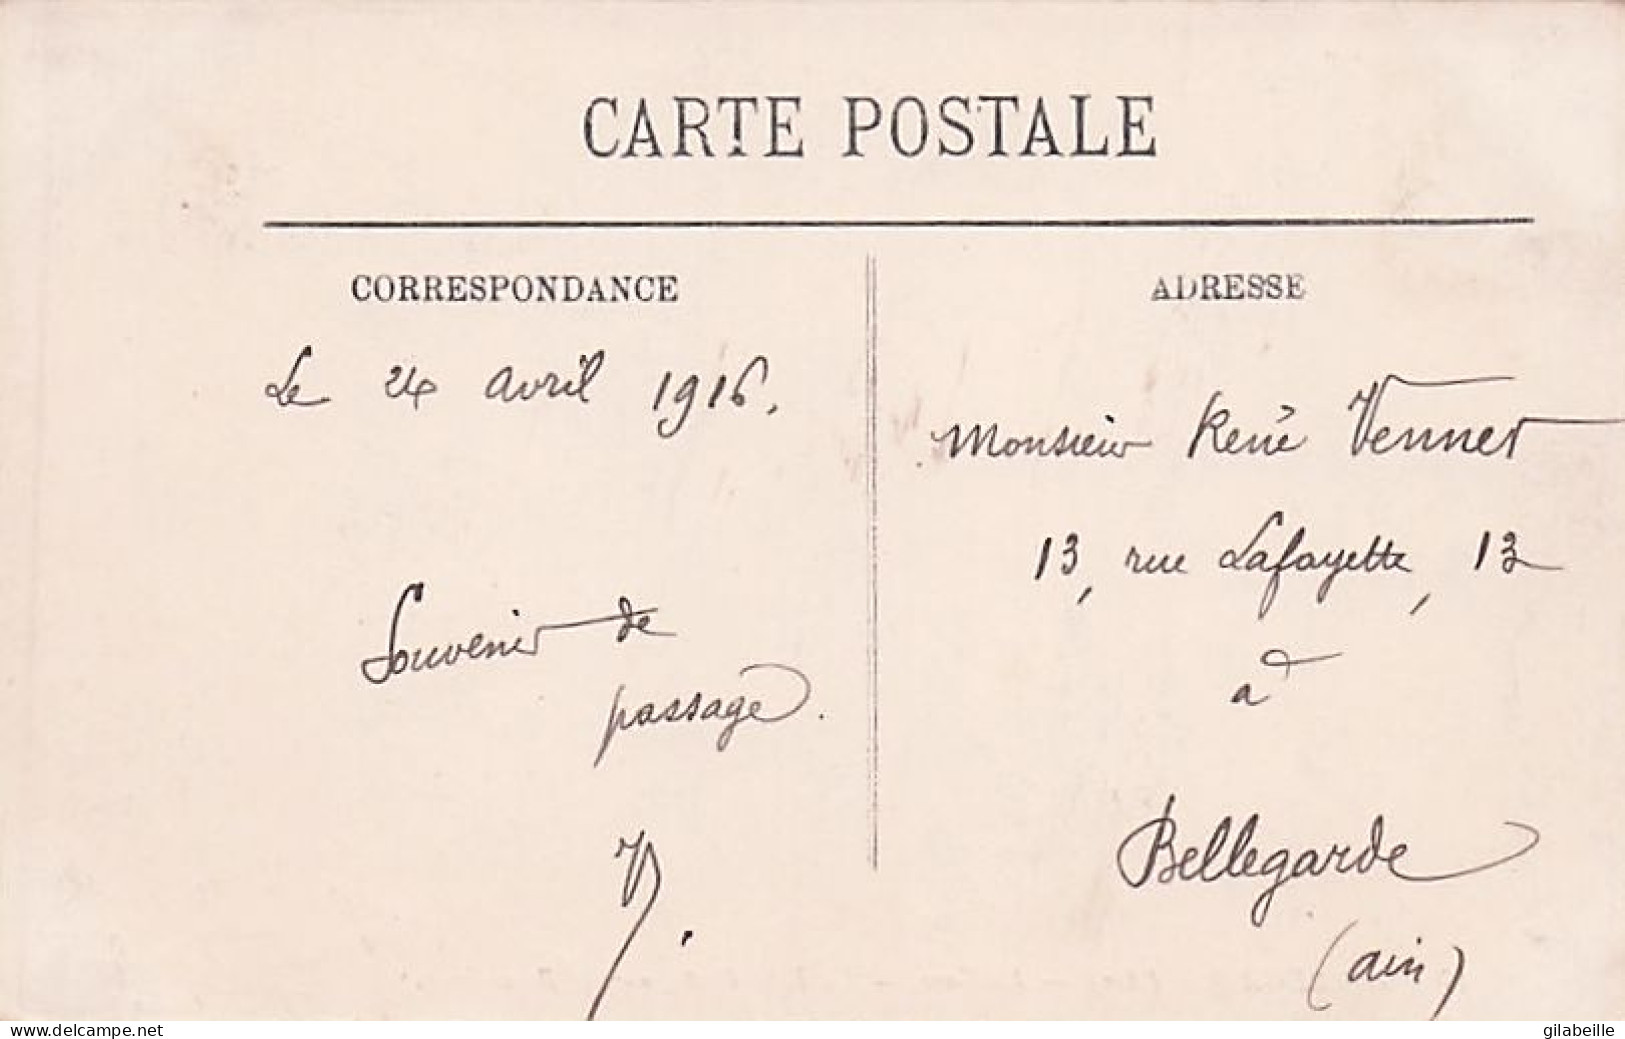 CARTE POSTALE
CORRESPONDANCE
Le 24 avril 1916.
Souvenir de
passage.
V.
ADRESSE
Monsieur René Vennet
13, rue Lafayette, 13
à
Bellegarde
(ain)
www.delcampe.net
gilabeille